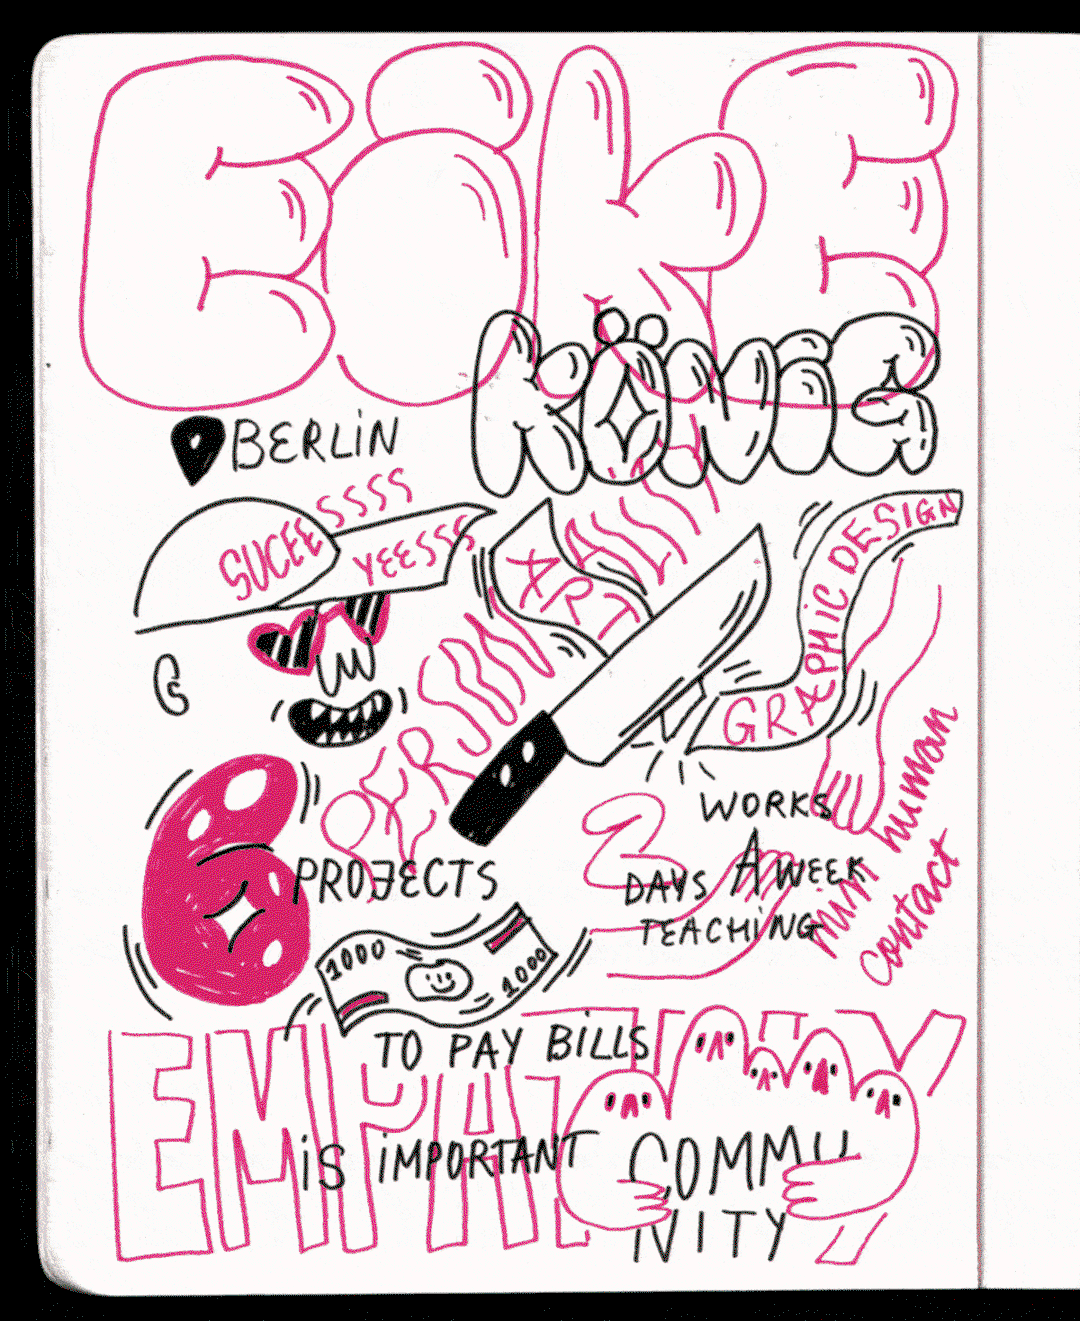 EiKE
KÖNiG
BERLiN
SUCEESSSS
YEESSS
ART
GRAPHiC DESIGN
PERSONALITY
PROJECTS
1000
1000
TO PAY BiLLS
WORKS
2
DAYS A WEEK
TEACHiNG
min human
contact
EMPATHY
iS iMPORTANT
COMMU
NITY